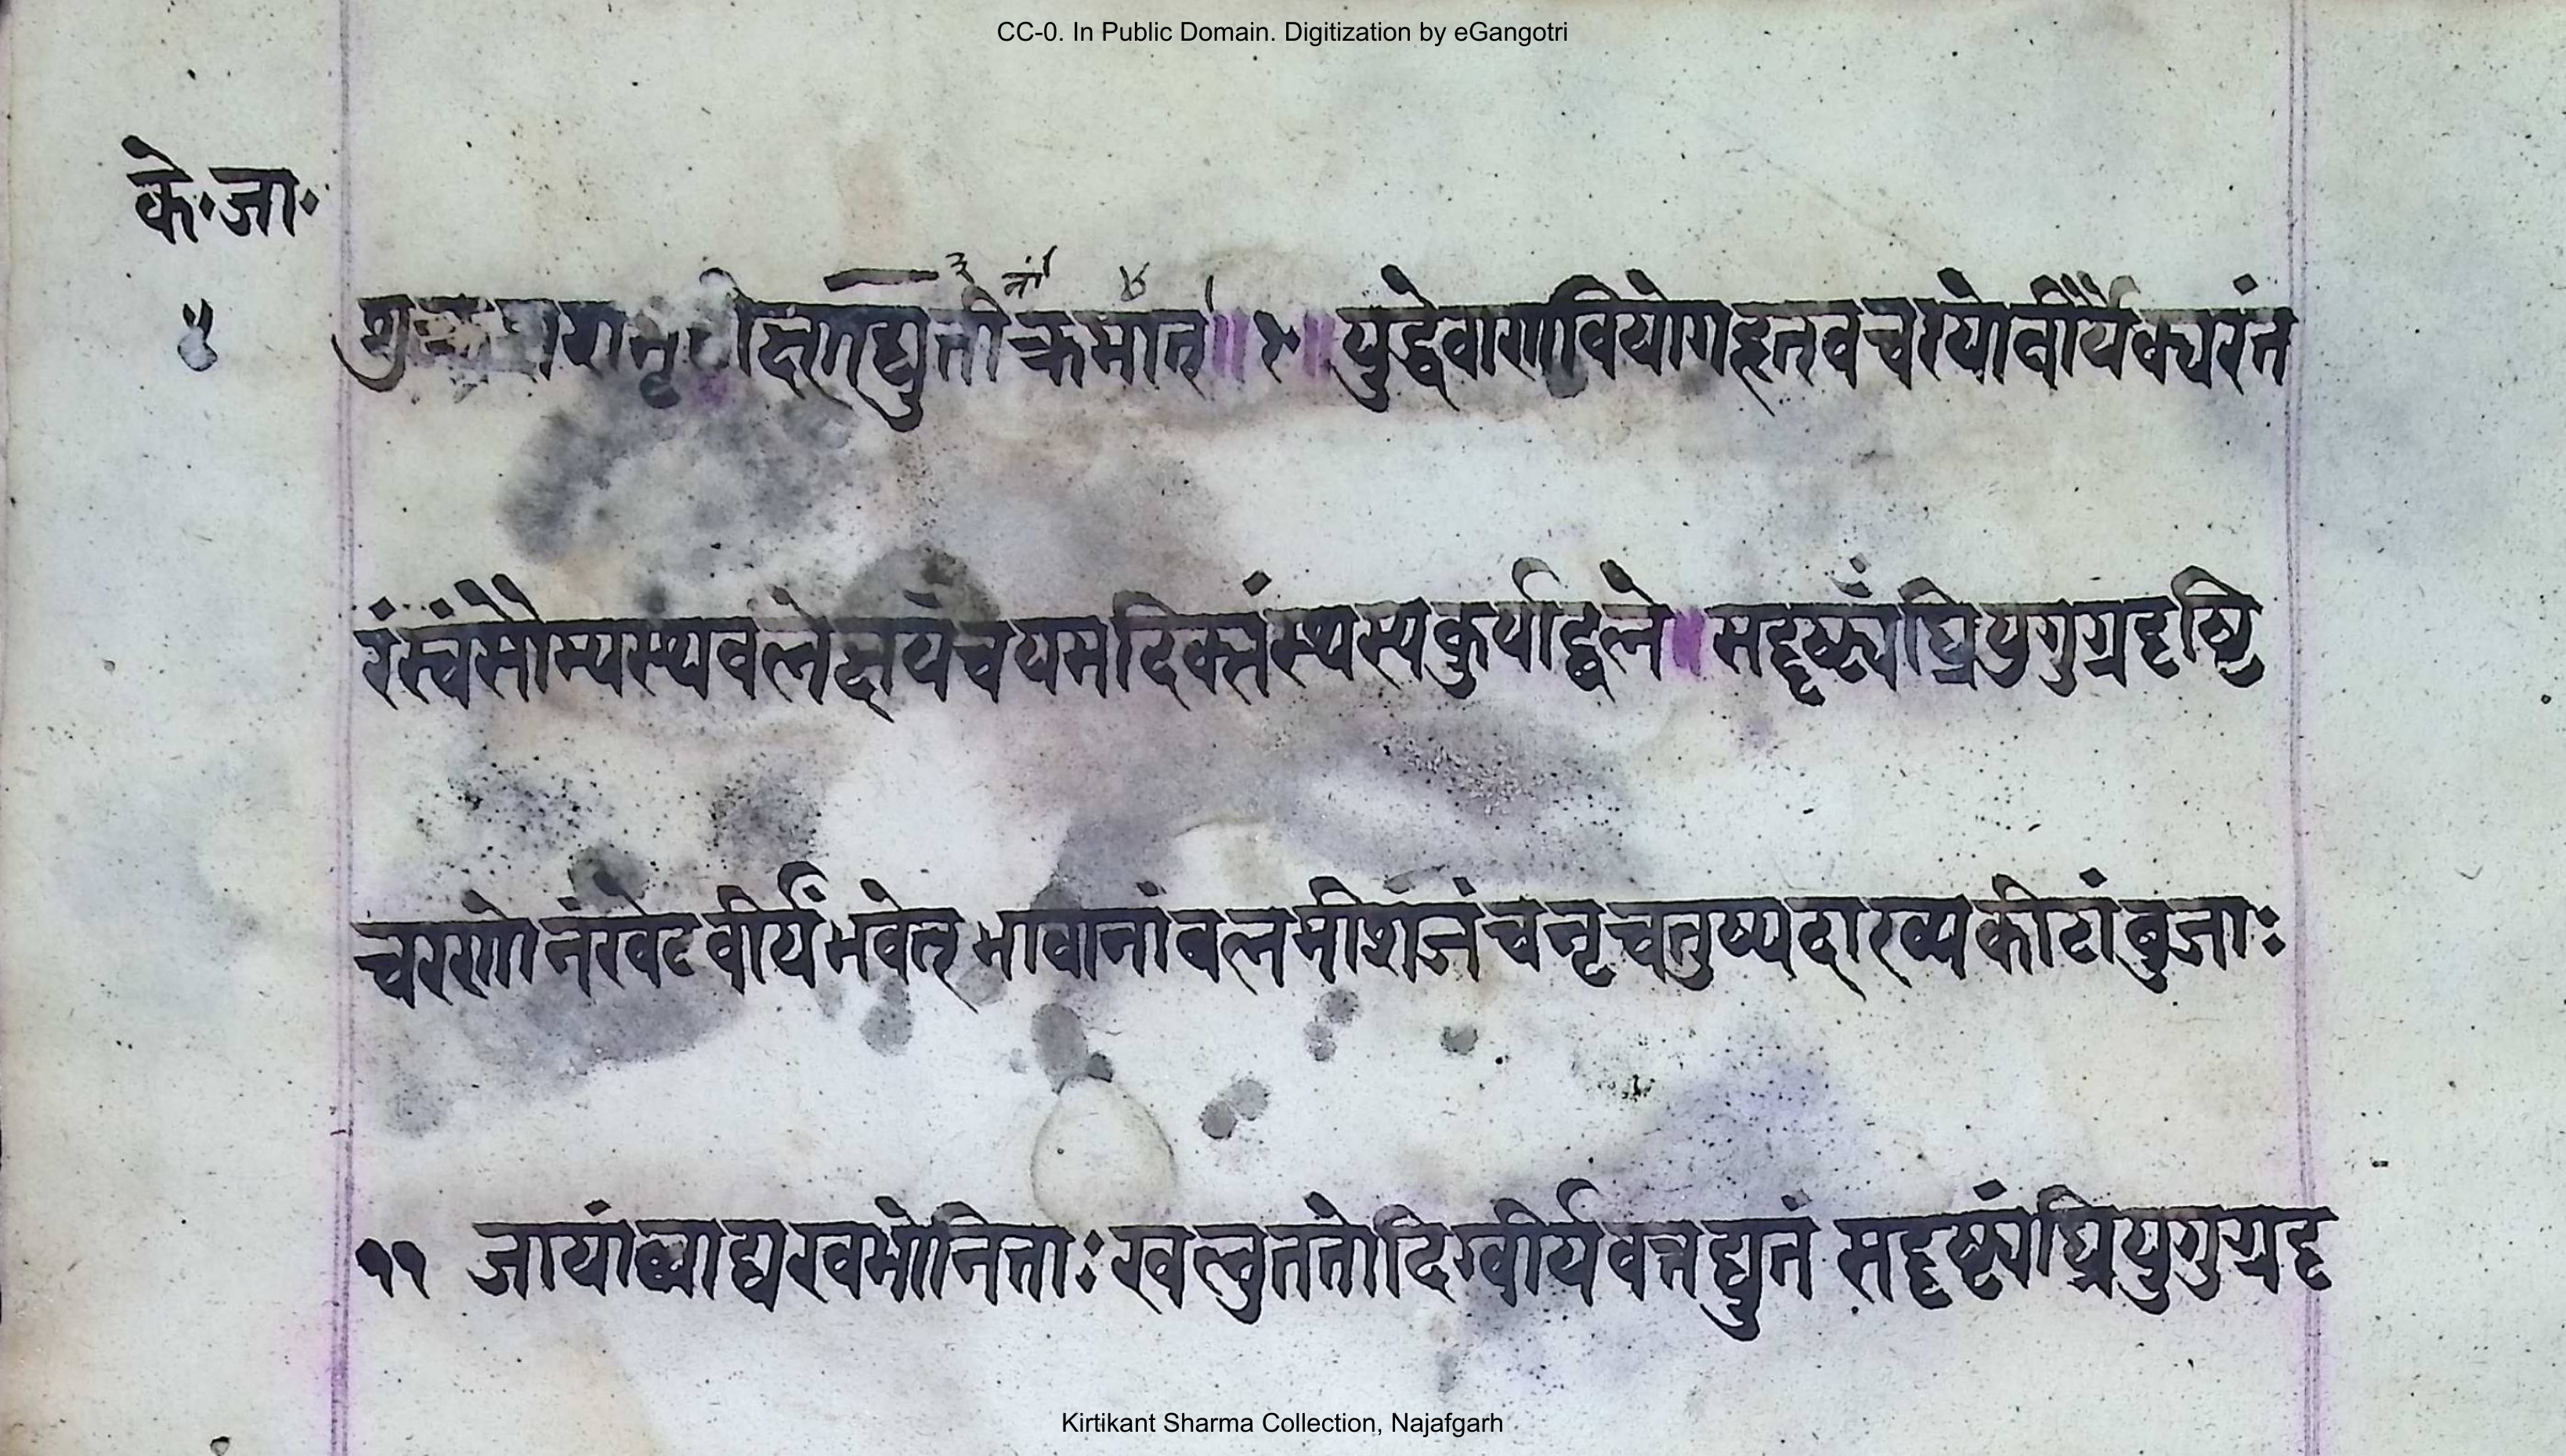 CC-0. In Public Domain. Digitization by eGangotri
के॰जा॰
५
क्रमात् ॥ युद्धेवाणवियोगहृतवचरयोर्वीर्यैक्यरंत
रंस्वंसौम्यस्थवलेक्षयंचयमदिक्तंस्थस्यकुर्याद्बले॥ सदृष्ट्यंघ्रियुगुग्रदृष्टि
चरणोनंखेटवीर्यंभवेत् भावानांबलमीशजंचनृचतुष्पदाख्यकीटांबुजाः
११ जायांब्वाद्यखभोनिताः खलुततोदिग्वीर्यवत्तद्युतं सदृष्ट्यंघ्रियुगुग्रदृ
Kirtikant Sharma Collection, Najafgarh